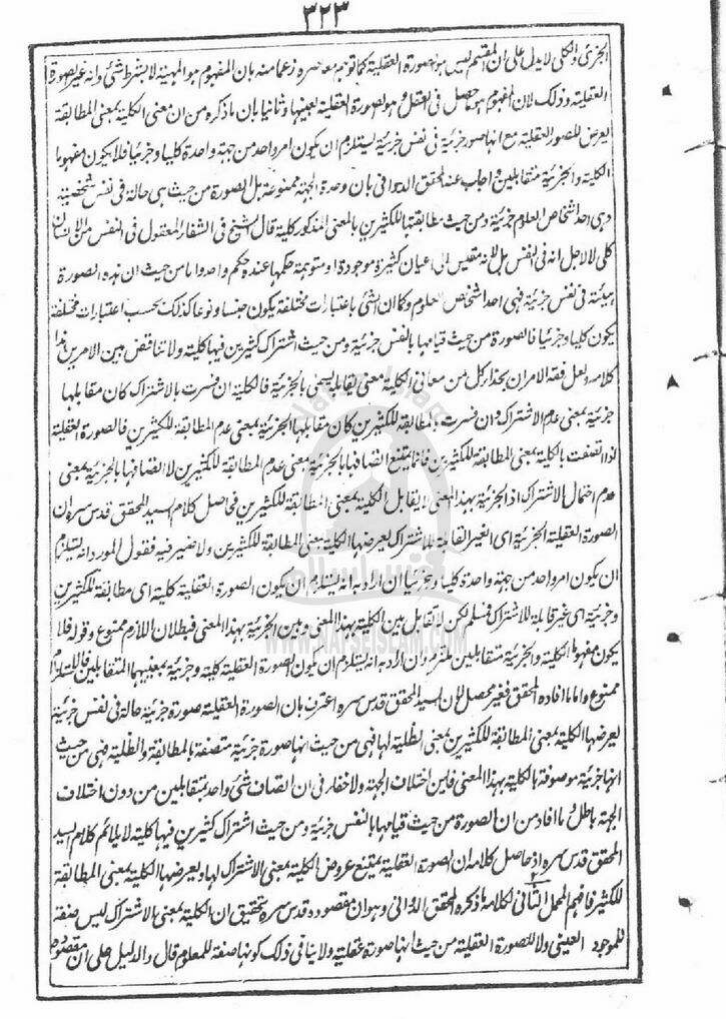 ٣٢٣
الجزئى والكلى لا يدل على ان المقسم ليس هو الصورة العقلية كما توهم معاصره زعما منه بان المفهوم هو المهية لا بشرط شئ وانه غير الصورة
العقلية وذلك لان المفهوم هو ما حصل فى العقل وهو الصورة العقلية بعينها وثانيا بان ما ذكره من ان معنى الكلية بمعنى المطابقة
يعرض للصور العقلية مع انها صور جزئية فى نفس جزئية يستلزم ان يكون امر واحد من جهة واحدة كليا وجزئيا فلا يكون مفهوما
الكلية والجزئية متقابلين واجاب عنه المحقق الدوانى بان وحدة الجهة ممنوعة بل الصورة من حيث هى حالة فى نفس شخصية
وهى احد اشخاص العلوم جزئية ومن حيث مطابقتها للكثيرين بالمعنى المذكور كلية قال الشيخ فى الشفاء المعقول فى النفس من الانسان
كلى لا لاجل انه فى النفس بل لانه مقيس الى اعيان كثيرة موجودة او متوهمة حكمها عنده حكم واحد واما من حيث ان هذه الصورة
هيئة فى نفس جزئية فهى احد اشخاص العلوم وكما ان الشئ باعتبارات مختلفة يكون جنسا ونوعا كذلك بحسب اعتبارات مختلفة
يكون كليا وجزئيا فالصورة من حيث قيامها بالنفس جزئية ومن حيث اشتراك كثيرين فيها كلية ولا تناقض بين الامرين هذا
كلامه ولعل فقه الامر ان بحذاء كل من معانى الكلية معنى يقابله يسمى بالجزئية فالكلية ان فسرت بالاشتراك كان مقابلها
جزئية بمعنى عدم الاشتراك وان فسرت بالمطابقة للكثيرين كان مقابلها الجزئية بمعنى عدم المطابقة للكثيرين فالصورة العقلية
اذا اتصفت بالكلية بمعنى المطابقة للكثيرين فانما يمتنع اتصافها بالجزئية بمعنى عدم المطابقة للكثيرين لا اتصافها بالجزئية بمعنى
عدم احتمال الاشتراك اذ الجزئية بهذا المعنى لا يقابل الكلية بمعنى المطابقة للكثيرين فحاصل كلام السيد المحقق قدس سره ان
الصورة العقلية الجزئية اى الغير القابلة للاشتراك يعرضها الكلية بمعنى المطابقة للكثيرين ولا ضير فيه فقول المورد انه يستلزم
ان يكون امر واحد من جهة واحدة كليا وجزئيا ان اراد به انه يستلزم ان يكون الصورة العقلية كلية اى مطابقة للكثيرين
وجزئية اى غير قابلة للاشتراك فمسلم لكن لا تقابل بين الكلية بهذا المعنى وبين الجزئية بهذا المعنى فبطلان اللازم ممنوع وقوله فلا
يكون مفهوما الكلية والجزئية متقابلين ملتزم وان اراد به انه يستلزم ان يكون الصورة العقلية كلية وجزئية بمعنييهما المتقابلين فالاستلزام
ممنوع واما ما افاده المحقق فغير محصل لان السيد المحقق قدس سره اعترف بان الصورة العقلية صورة جزئية حالة فى نفس جزئية
يعرضها الكلية بمعنى المطابقة للكثيرين بمعنى الظلية لها فهى من حيث انها صورة جزئية متصفة بالمطابقة والظلية فهى من حيث
انها جزئية موصوفة بالكلية بهذا المعنى فاين اختلاف الجهة ولا خفاء فى ان اتصاف شئ واحد بمتقابلين من دون اختلاف
الجهة باطل وما افاد من ان الصورة من حيث قيامها بالنفس جزئية ومن حيث اشتراك كثيرين فيها كلية لا يلائم كلام السيد
المحقق قدس سره اذ حاصل كلامه ان الصورة العقلية يمتنع عروض الكلية بمعنى الاشتراك لها ويعرضها الكلية بمعنى المطابقة
للكثير فافهم المحمل الثانى لكلامه ما ذكره المحقق الدوانى وهو ان مقصوده قدس سره تحقيق ان الكلية بمعنى الاشتراك ليس صفة
للموجود العينى ولا للصورة العقلية من حيث انها صورة عقلية ولا ينافى ذلك كونها صفة للمعلوم قال والدليل على ان مقصوده
WWW.NAFSEISLAM.COM